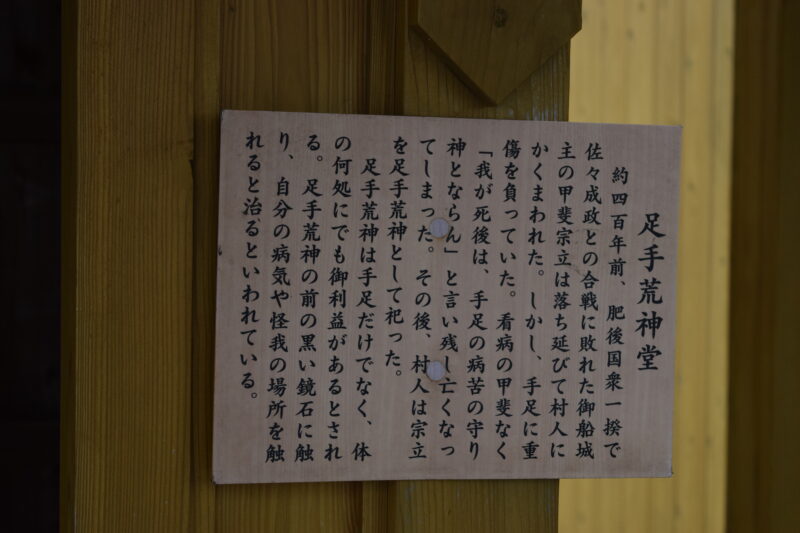 足手荒神堂
約四百年前、肥後国衆一揆で
佐々成政との合戦に敗れた御船城
主の甲斐宗立は落ち延びて村人に
かくまわれた。しかし、手足に重
傷を負っていた。看病の甲斐なく
「我が死後は、手足の病苦の守り
神とならん」と言い残し亡くなっ
てしまった。その後、村人は宗立
を足手荒神として祀った。
足手荒神は手足だけでなく、体
の何処にでも御利益があるとされ
る。足手荒神の前の黒い鏡石に触
り、自分の病気や怪我の場所を触
れると治るといわれている。